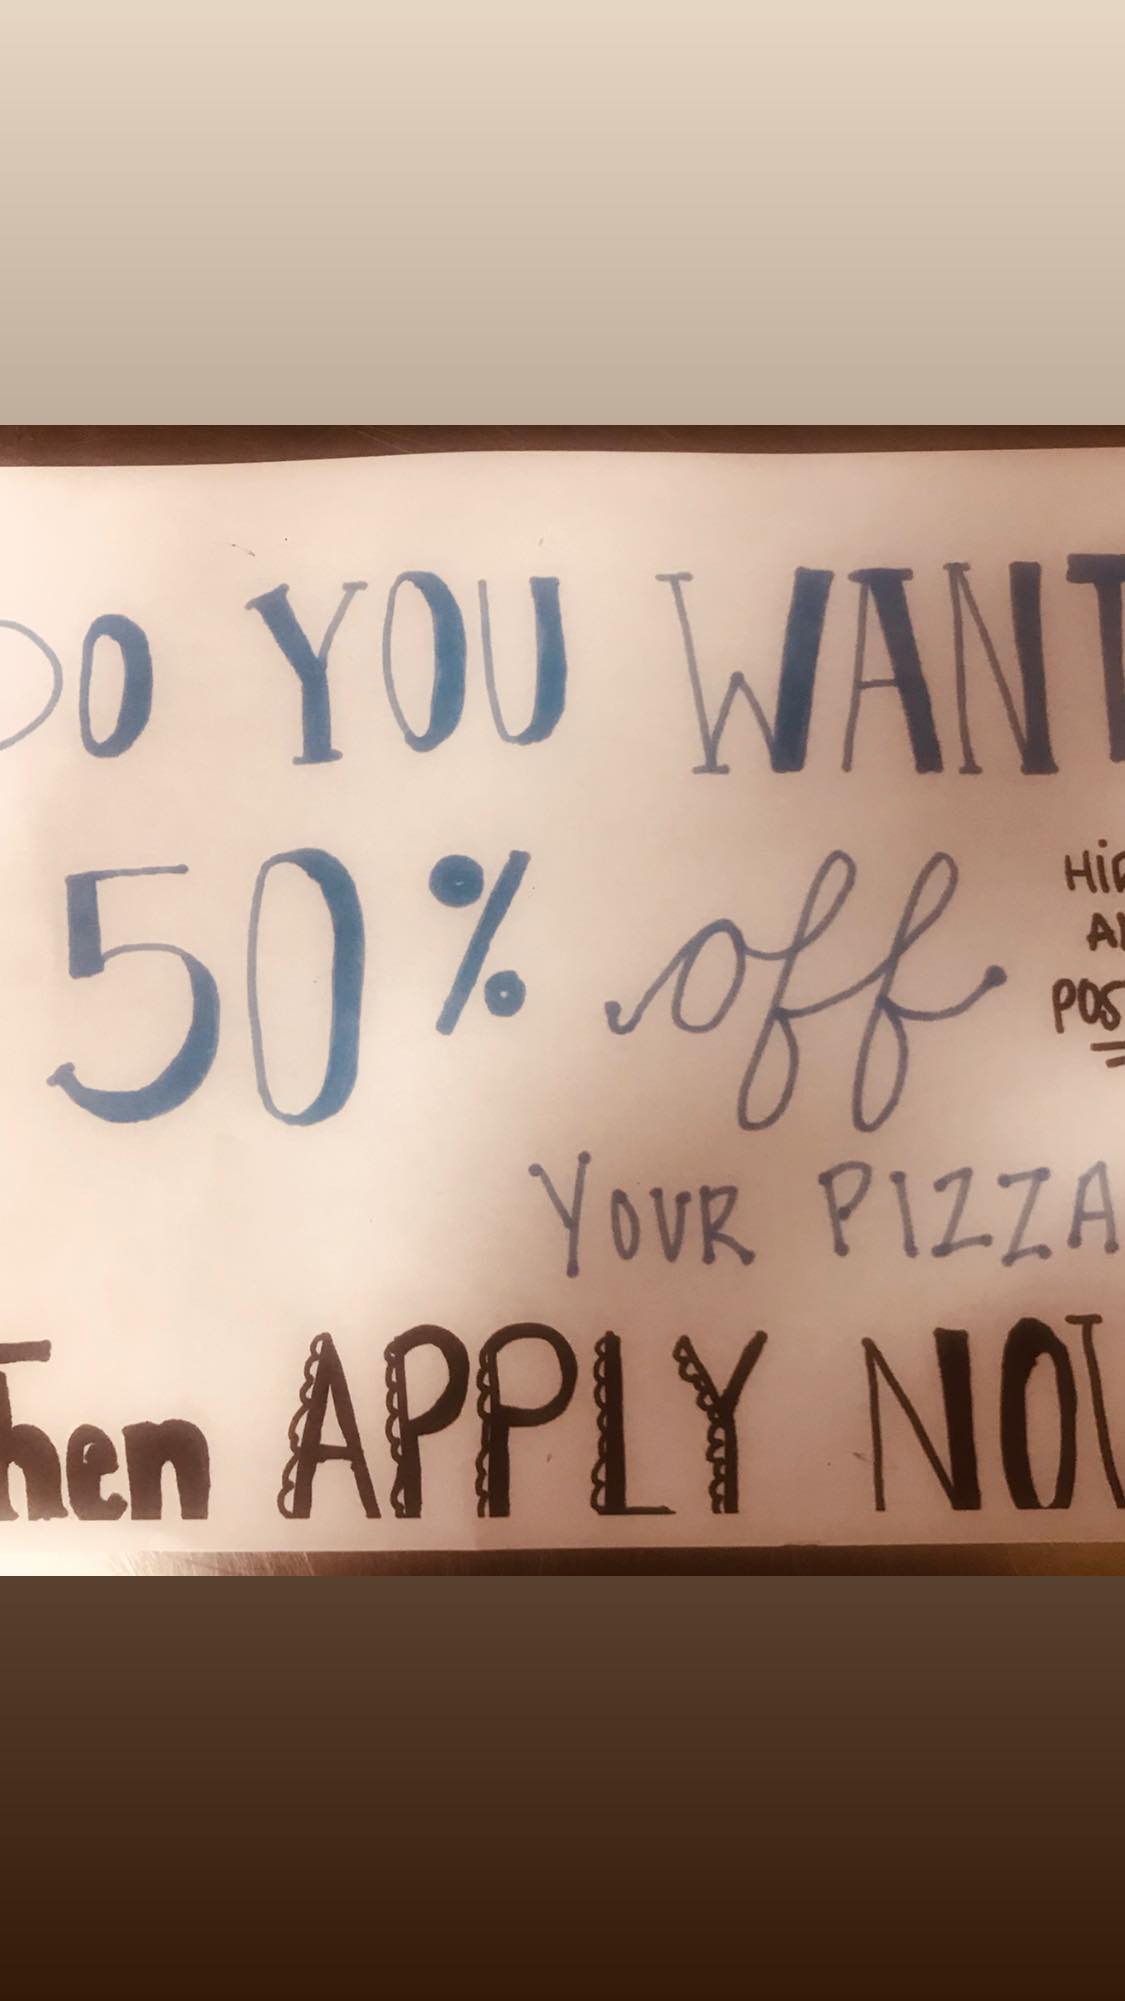 DO YOU WANT
50% off
YOUR PIZZA
Then APPLY NOW